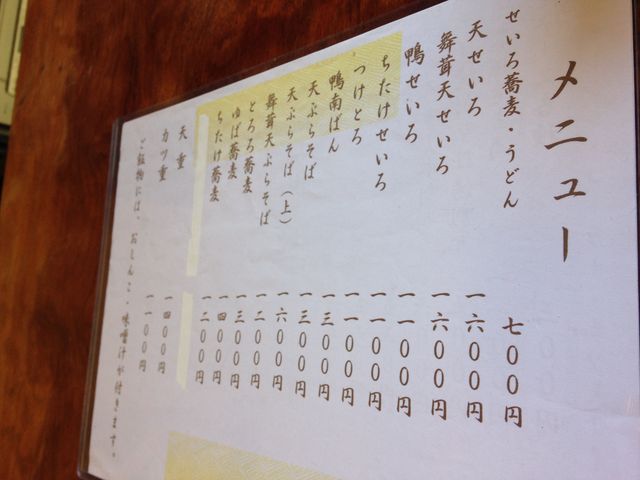 メニュー
せいろ蕎麦・うどん 七〇〇円
天せいろ 一六〇〇円
舞茸天せいろ 一六〇〇円
鴨せいろ 一一〇〇円
ちたけせいろ 一一〇〇円
つけとろ 一一〇〇円
鴨南ばん 一三〇〇円
天ぷらそば 一三〇〇円
天ぷらそば(上) 一六〇〇円
舞茸天ぷらそば 一二〇〇円
とろろ蕎麦 一三〇〇円
ゆば蕎麦 一四〇〇円
ちたけ蕎麦 一二〇〇円
天重 一四〇〇円
カツ重 一一〇〇円
ご飯物には、おしんこ・味噌汁が付きます。